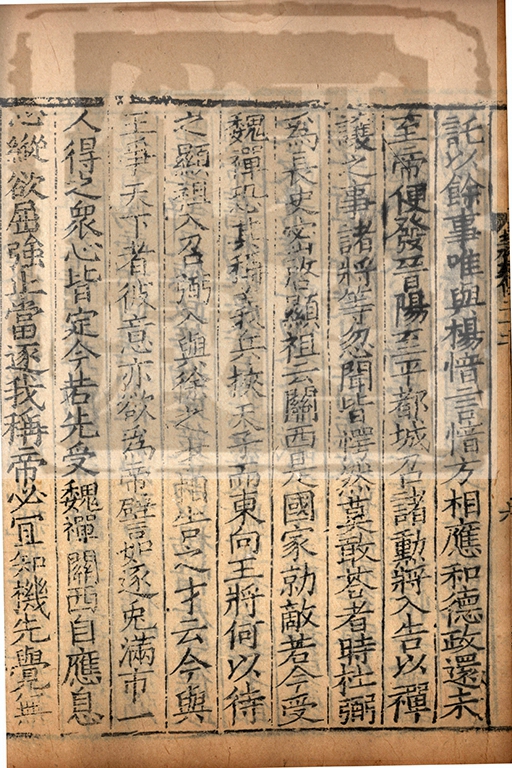 託以餘事唯與楊愔言愔方相應和德政還未
至帝便發晉陽至平都城召諸勳將入告以禪
讓之事諸將等忽聞皆愕然莫敢答者時杜弼
為長史密啓顯祖云關西是國家勍敵若今受
魏禪恐其稱義兵挾天子而東向王將何以待
之顯祖入召弼入與徐之才相告之才云今與
王爭天下者彼意亦欲為帝譬如逐兎滿市一
人得之衆心皆定今若先受魏禪關西自應息
心縱欲屈強止當逐我稱帝必宜知機先覺無